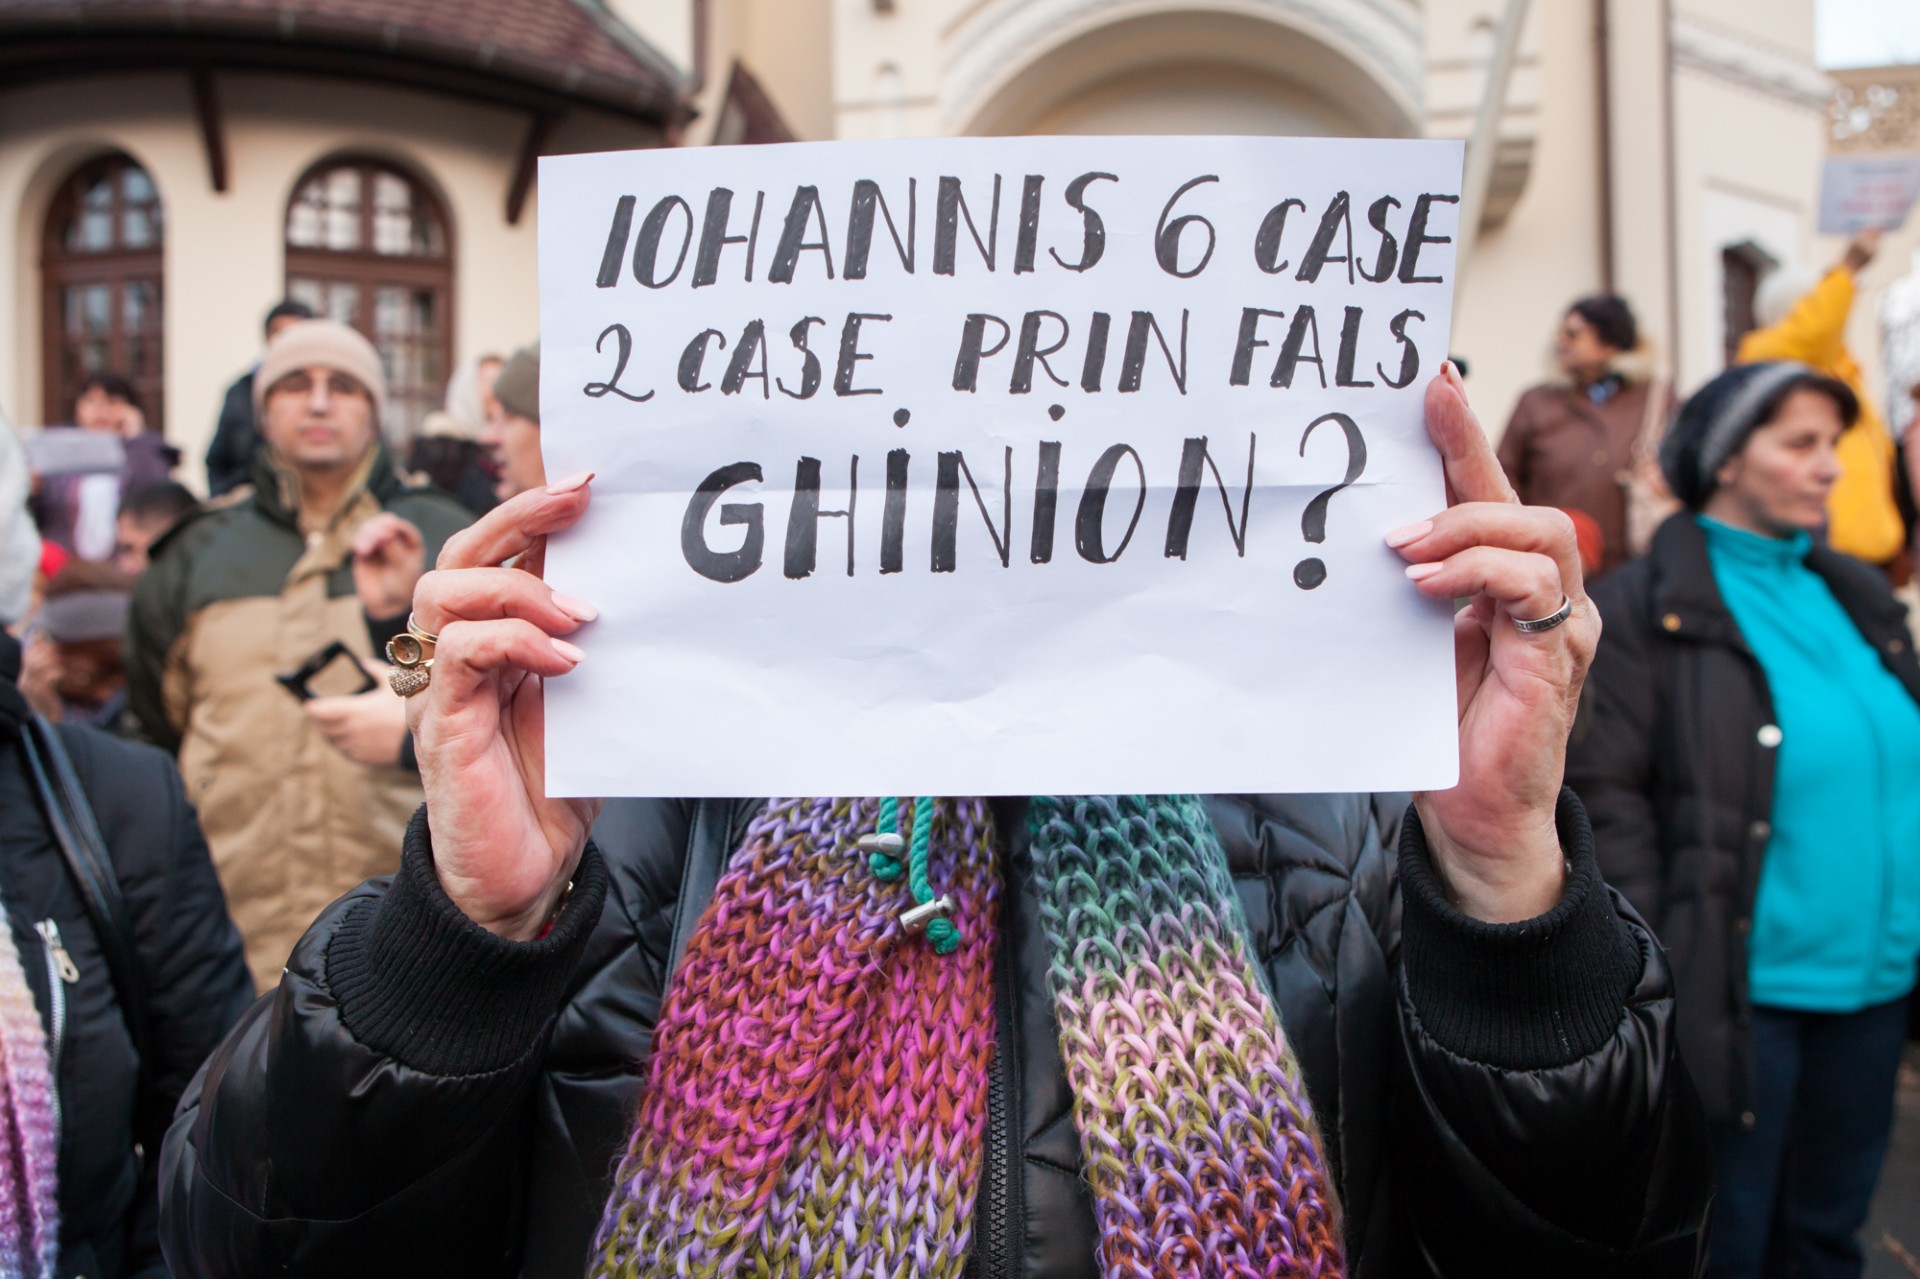 IOHANNIS 6 CASE
2 CASE PRIN FALS
GHINION?